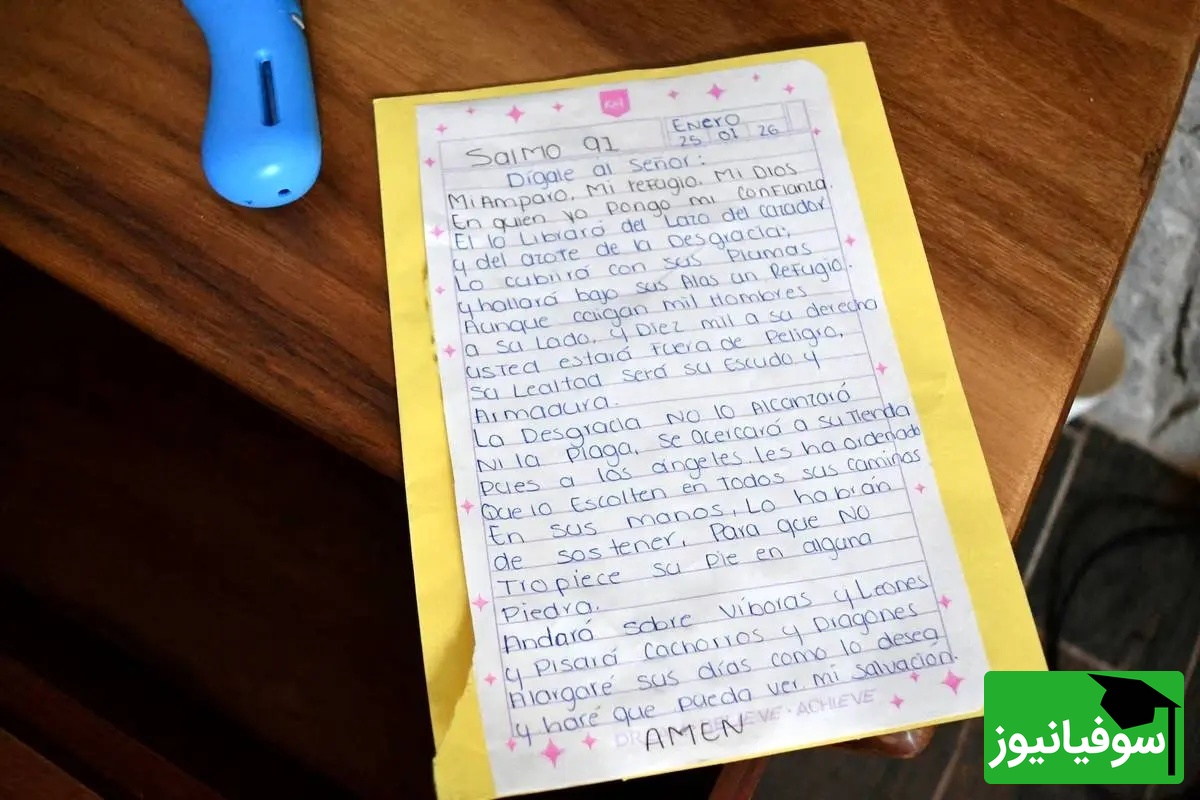 KM
Salmo 91
Enero
25 01 26
Dígale al Señor:
Mi Amparo, Mi refugio, Mi Dios
En quien yo pongo mi confianza.
El lo Librará del Lazo del cazador
y del azote de la Desgracia;
Lo cubrirá con sus Plumas
y hallará bajo sus Alas un Refugio.
Aunque caigan mil Hombres
a su lado, y Diez mil a su derecha
usted estará Fuera de Peligro,
su Lealtad será su Escudo y
Armadura.
La Desgracia No lo Alcanzará
Ni la Plaga, se acercará a su Tienda
pues a los ángeles les ha ordenado
Que lo Escolten en Todos sus caminos
En sus manos, Lo habrán
de sostener, Para que No
Tropiece su Pie en alguna
Piedra.
Andará sobre Víboras y Leones
y Pisará Cachorros y Dragones
Alargaré sus días como lo desea
y haré que pueda ver mi salvación.
EVE · ACHIEVE
AMEN
سوفیانیوز